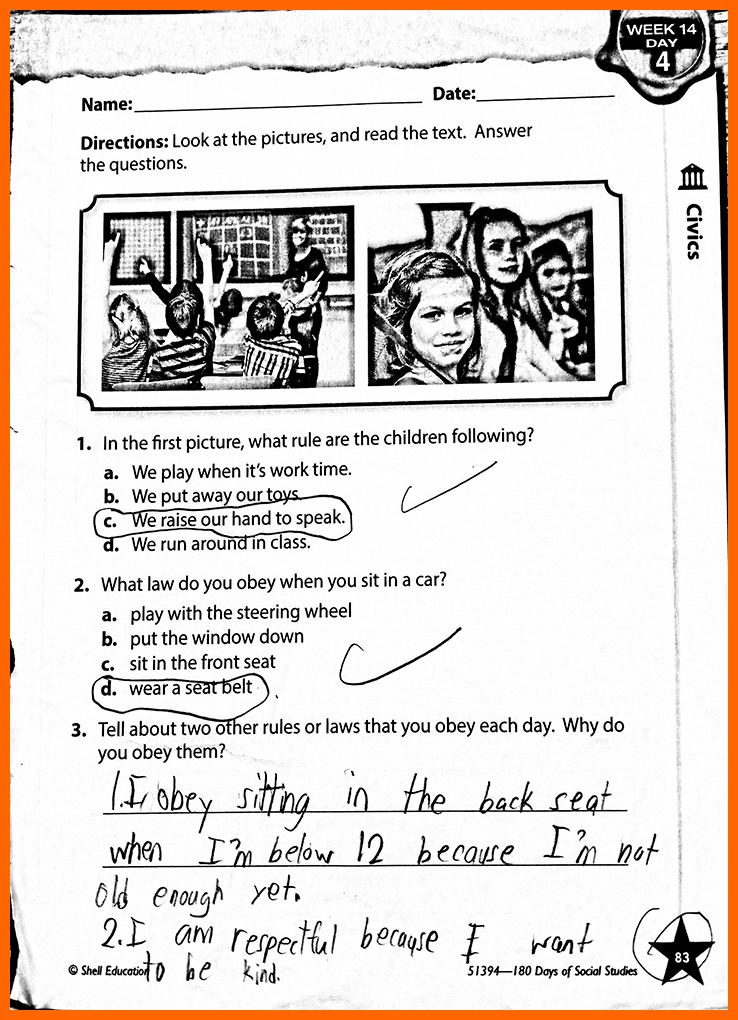 WEEK 14
DAY
4
Name: Date:
Directions: Look at the pictures, and read the text. Answer
the questions.
Civics
1. In the first picture, what rule are the children following?
a. We play when it's work time.
b. We put away our toys.
c. We raise our hand to speak.
d. We run around in class.
2. What law do you obey when you sit in a car?
a. play with the steering wheel
b. put the window down
c. sit in the front seat
d. wear a seat belt
3. Tell about two other rules or laws that you obey each day. Why do
you obey them?
1. I obey sitting in the back seat
when I'm below 12 because I'm not
old enough yet.
2. I am respectful because I want
to be kind.
© Shell Education 51394—180 Days of Social Studies 83